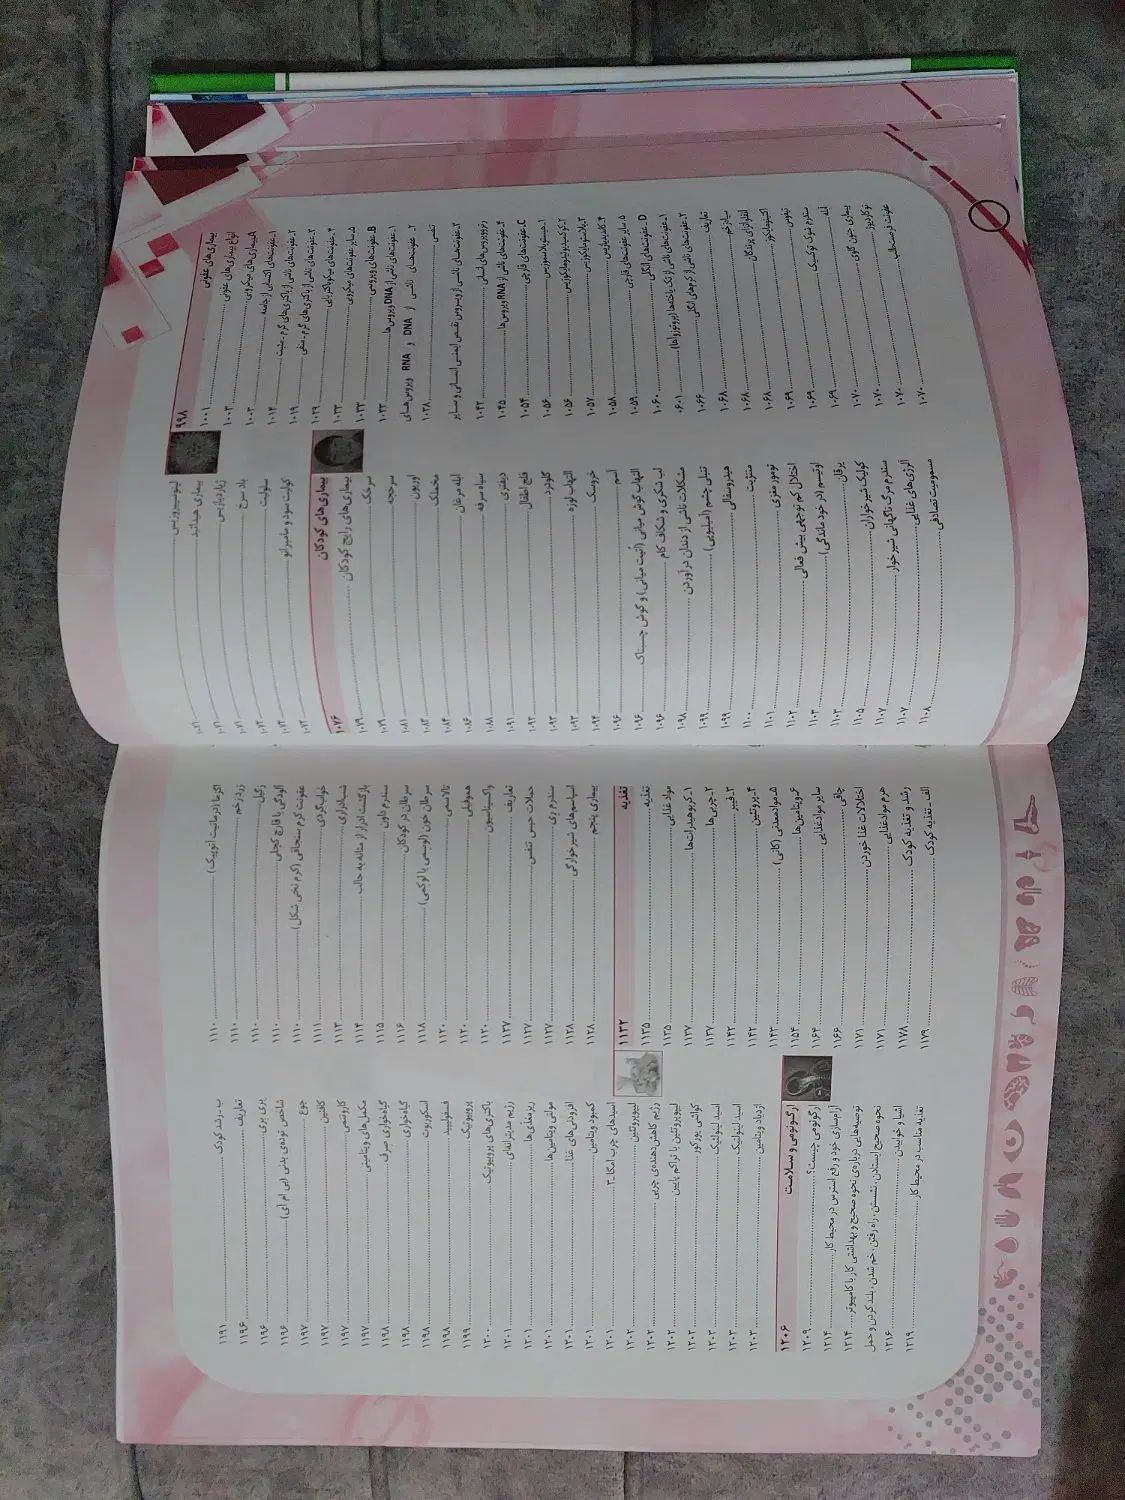 بیماری‌های عفونی ۹۹۸
انواع بیماری‌های عفونی ۱۰۰۱
A.بیماری‌های میکروبی ۱۰۰۳
۱ـ عفونت‌های اکتسابی از جامعه ۱۰۰۳
۲ـ عفونت‌های ناشی از باکتری‌های گرم ـ مثبت ۱۰۱۴
۳ـ عفونت‌های ناشی از باکتری‌های گرم ـ منفی ۱۰۱۹
۴ـ عفونت‌های میکوباکتریایی ۱۰۲۹
۵ـ سایر عفونت‌های میکروبی ۱۰۳۳
B.عفونت‌های ویروسی ۱۰۳۳
۱ـ عفونت‌های ناشی از DNA ویروس‌ها ۱۰۳۳
۲ـ عفونت‌های ناشی از DNA و RNA ویروس‌های
تنفسی ۱۰۳۸
۳ـ عفونت‌های ناشی از ویروس نقص ایمنی انسانی و سایر
رتروویروس‌های انسانی ۱۰۴۲
۴ـ عفونت‌های ناشی از RNA ویروس‌ها ۱۰۴۵
C.عفونت‌های قارچی ۱۰۵۴
۱ـ هیستوپلاسموزیس ۱۰۵۶
۲ـ کوکسیدیوئیدومایکوزیس ۱۰۵۶
۳ـ بلاستومایکوزیس ۱۰۵۷
۴ـ کاندیدیازیس ۱۰۵۸
۵ـ سایر عفونت‌های قارچی ۱۰۵۹
D.عفونت‌های انگلی ۱۰۶۰
۱ـ عفونت‌های ناشی از تک یاخته‌ها (پروتوزوآها) ۱۰۶۰
۲ـ عفونت‌های ناشی از کرم‌های انگلی ۱۰۶۶
تعاریف ۱۰۶۸
سیاه زخم ۱۰۶۸
آنفلوانزای پرندگان ۱۰۶۸
اکتینومایکوز ۱۰۶۸
تیفوس ۱۰۶۹
سندرم شوک توکسیک ۱۰۶۹
آبله ۱۰۶۹
بیماری جنون گاوی ۱۰۷۰
نوکاردیوز ۱۰۷۰
عفونت فرصت‌طلب ۱۰۷۰
لپتوسپیروزیس ۱۰۷۱
بیماری هیداتید ۱۰۷۱
ژیاردیازیس ۱۰۷۱
باد سرخ ۱۰۷۲
سلولیت ۱۰۷۳
کولیت سودو مامبرانو ۱۰۷۳
بیماری‌های کودکان ۱۰۷۶
بیماری‌های رایج کودکان ۱۰۷۹
سرخک ۱۰۷۹
سرخجه ۱۰۸۱
اوریون ۱۰۸۳
مخملک ۱۰۸۴
آبله مرغان ۱۰۸۶
سیاه سرفه ۱۰۸۸
دیفتری ۱۰۹۱
فلج اطفال ۱۰۹۲
گلودرد ۱۰۹۲
التهاب لوزه ۱۰۹۳
خروسک ۱۰۹۴
آسم ۱۰۹۶
التهاب گوش میانی (اُتیت میانی) و گوش چسبناک ۱۰۹۶
لب شکری و شکاف کام ۱۰۹۶
مشکلات ناشی از دندان درآوردن ۱۰۹۸
تنبلی چشم (آمبلیوپی) ۱۰۹۹
هیدروسفالی ۱۰۹۹
مننژیت ۱۱۰۰
تومور مغزی ۱۱۰۱
اختلال کم توجهی بیش فعالی ۱۱۰۲
اوتیسم (در خود ماندگی) ۱۱۰۳
یرقان ۱۱۰۳
کولیک شیرخواران ۱۱۰۵
سندرم مرگ ناگهانی شیرخوار ۱۱۰۷
آلرژی‌های غذایی ۱۱۰۷
مسمومیت تصادفی ۱۱۰۸
اگزما (درماتیت آتوپیک) ۱۱۱۰
زرد زخم ۱۱۱۰
زگیل ۱۱۱۰
آلودگی با قارچ کچلی ۱۱۱۰
عفونت کرم سنجاقی (کرم نخی شکل) ۱۱۱۰
خواب‌گردی ۱۱۱۱
شب‌ادراری ۱۱۱۳
بازگشت ادرار از مثانه به حالب ۱۱۱۴
سندرم داون ۱۱۱۵
سرطان در کودکان ۱۱۱۶
سرطان خون (لوسمی یا لوکمی) ۱۱۱۸
تالاسمی ۱۱۲۰
هموفیلی ۱۱۲۰
واکسیناسیون ۱۱۲۰
تعاریف ۱۱۲۷
حملات حبس تنفس ۱۱۲۷
سندرم ری ۱۱۲۷
اسپاسم‌های شیرخوارگی ۱۱۲۸
بیماری پنجم ۱۱۲۸
تغذیه ۱۱۳۲
تغذیه ۱۱۳۵
مواد غذایی ۱۱۳۵
۱ـ کربوهیدرات‌ها ۱۱۳۷
۲ـ چربی‌ها ۱۱۳۷
۳ـ فیبر ۱۱۴۲
۴ـ پروتئین ۱۱۴۲
۵ـ مواد معدنی (کانی) ۱۱۴۳
۶ـ ویتامین‌ها ۱۱۵۴
سایر مواد غذایی ۱۱۶۴
چاقی ۱۱۶۶
اختلالات غذا خوردن ۱۱۷۱
هرم مواد غذایی ۱۱۷۱
رشد و تغذیه کودک ۱۱۷۸
الف ـ تغذیه کودک ۱۱۷۹
ب ـ رشد کودک ۱۱۹۱
تعاریف ۱۱۹۶
بری بری ۱۱۹۶
شاخص توده‌ی بدنی (بی ام آی) ۱۱۹۶
جوع ۱۱۹۷
کافئین ۱۱۹۷
کاروتنمی ۱۱۹۷
مکمل‌های ویتامینی ۱۱۹۷
گیاه‌خواری صرف ۱۱۹۸
گیاه‌خواری ۱۱۹۸
اسکوربوت ۱۱۹۸
فسفولیپید ۱۱۹۸
پروبیوتیک ۱۱۹۹
باکتری‌های پروبیوتیک ۱۲۰۰
رژیم مدیترانه‌ای ۱۲۰۱
ریزمغذی‌ها ۱۲۰۱
مولتی ویتامین‌ها ۱۲۰۱
افزودنی‌های غذا ۱۲۰۱
کمبود ویتامین ۱۲۰۱
اسیدهای چرب امگا ـ۳ ۱۲۰۱
لیپوپروتئین ۱۲۰۲
رژیم کاهش دهنده‌ی چربی ۱۲۰۲
لیپوپروتئین با تراکم پایین ۱۲۰۲
کواشی یورکور ۱۲۰۲
اسید لینولئیک ۱۲۰۳
اسید لینولنیک ۱۲۰۳
ازدیاد ویتامین ۱۲۰۳
ارگونومی و سلامت ۱۲۰۶
ارگونومی چیست؟ ۱۲۰۹
آرام‌سازی خود و رفع استرس در محیط کار ۱۲۱۴
توصیه‌هایی درباره‌ی نحوه صحیح و بهداشتی کار با کامپیوتر ۱۲۱۴
نحوه صحیح ایستادن، نشستن، راه رفتن، خم شدن، بلند کردن و حمل
اشیا و خوابیدن ۱۲۱۶
تغذیه مناسب در محیط کار ۱۲۱۹